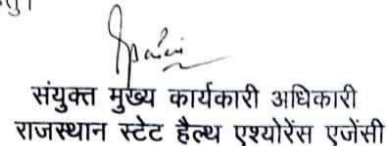 संयुक्त मुख्य कार्यकारी अधिकारी
राजस्थान स्टेट हैल्थ एश्योरेंस एजेंसी